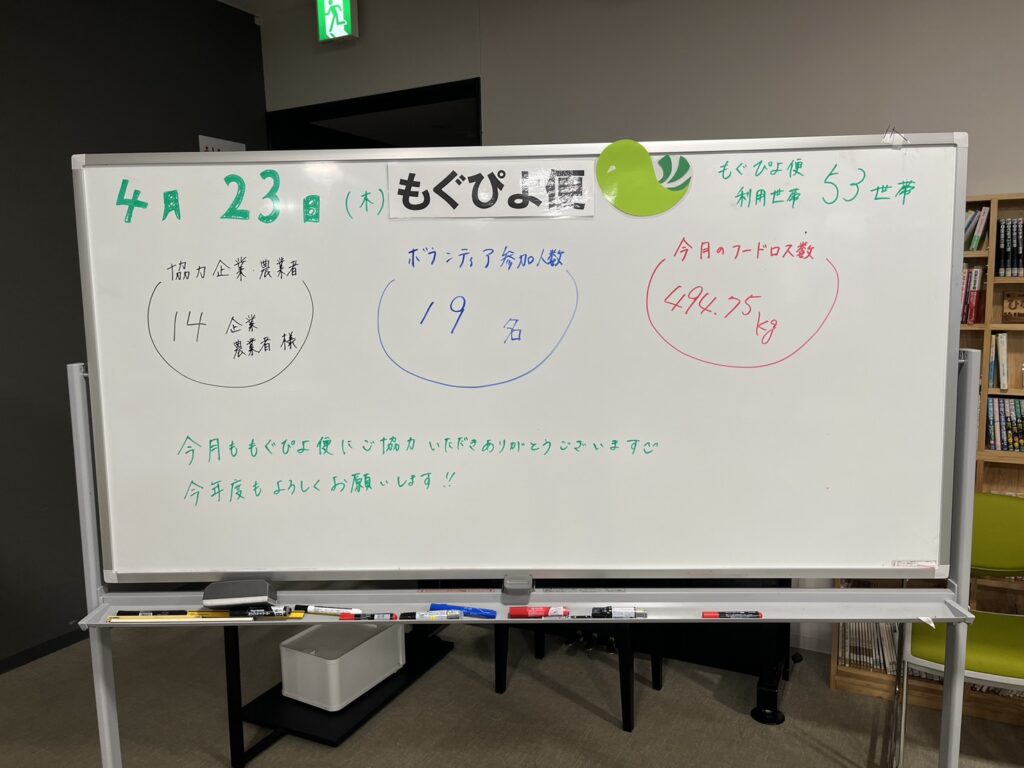 4月 23日 (木)
もぐぴよ便
もぐぴよ便
利用世帯 53世帯
協力企業・農業者
14 企業
農業者様
ボランティア参加人数
19 名
今月のフードロス数
494.75kg
今月ももぐぴよ便にご協力いただきありがとうございます。
今年度もよろしくお願いします!!